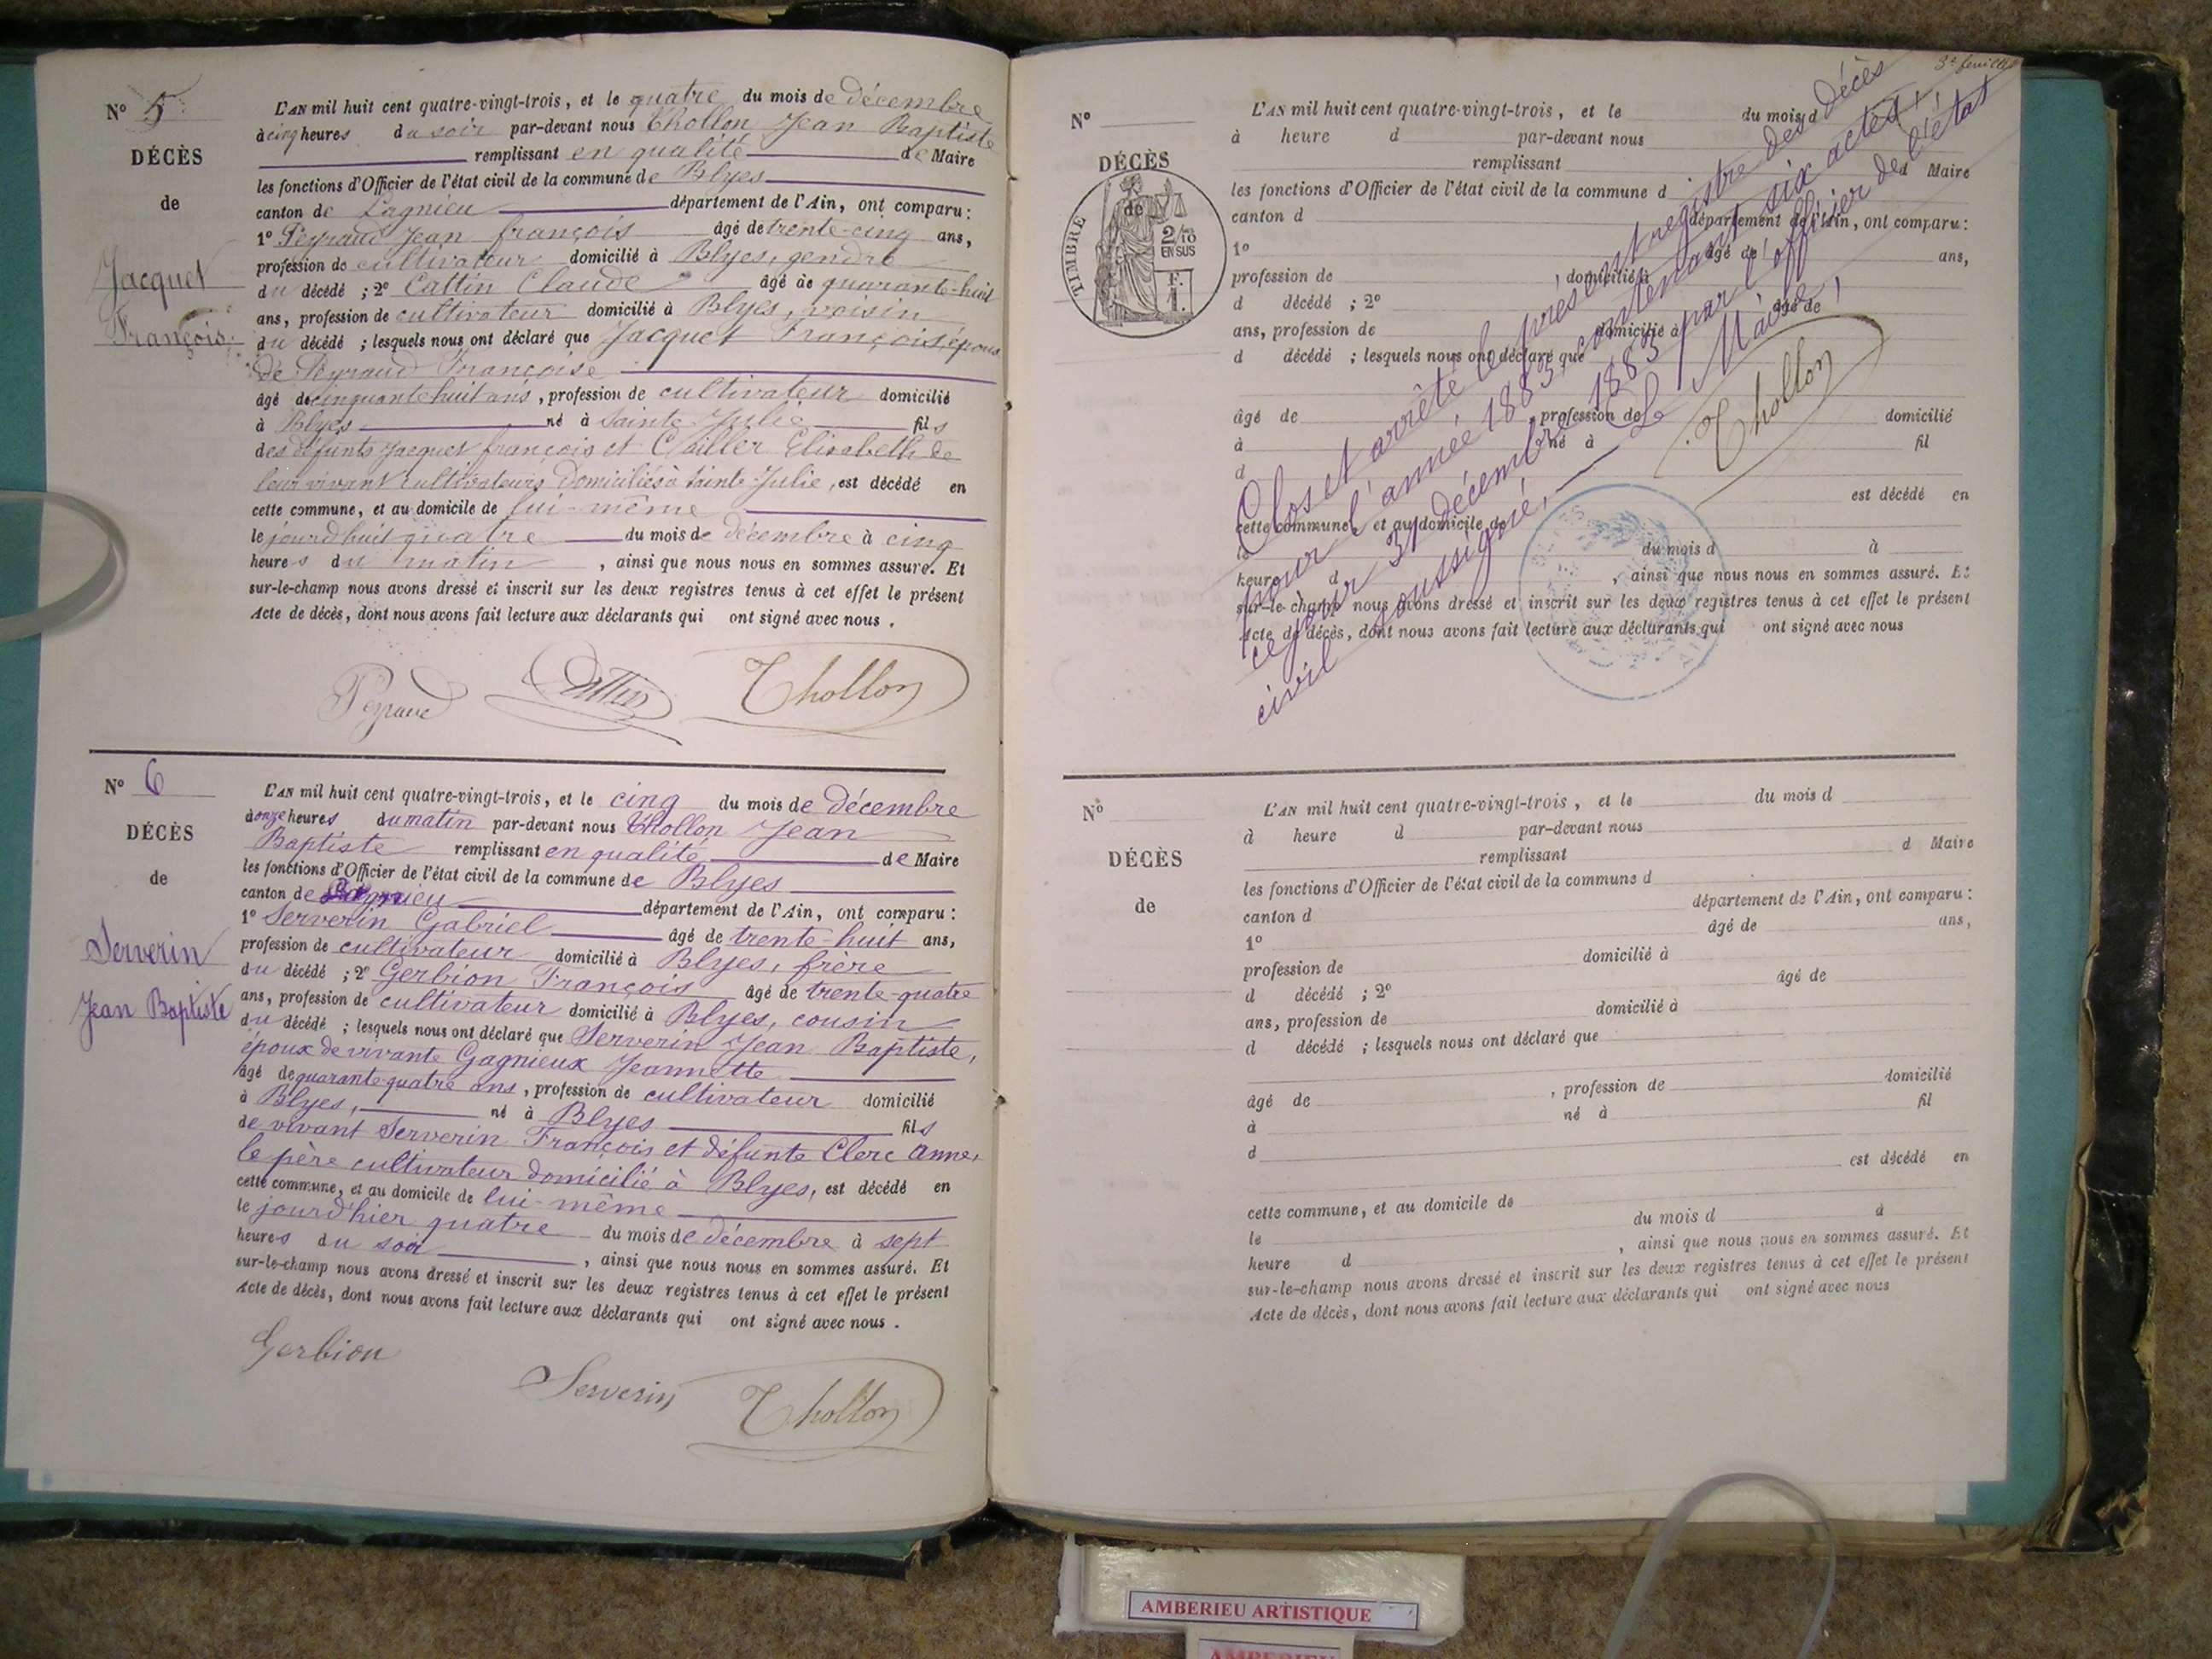 N° 5
DÉCÈS
de
Jacquet
François
L'AN mil huit cent quatre-vingt-trois, et le quatre du mois de décembre
à cinq heures du soir par-devant nous Thollon Jean Baptiste
remplissant en qualité de Maire
les fonctions d'Officier de l'état civil de la commune de Blyes
canton de Lagnieu département de l'Ain, ont comparu :
1° Peyraud Jean françois âgé de trente-cinq ans,
profession de cultivateur domicilié à Blyes, gendre
du décédé ; 2° Cattin Claude âgé de quarante-huit
ans, profession de cultivateur domicilié à Blyes, voisin
du décédé ; lesquels nous ont déclaré que Jacquet François, époux
de Peyraud Françoise
âgé de cinquante huit ans, profession de cultivateur domicilié
à Blyes né à Sainte Julie fils
des défunts Jacquet françois et Elisabeth de
leur vivant cultivateurs domiciliés à Sainte Julie, est décédé en
cette commune, et au domicile de lui-même
le jourd'huit quatre du mois de décembre à cinq
heures du matin, ainsi que nous nous en sommes assuré. Et
sur-le-champ nous avons dressé et inscrit sur les deux registres tenus à cet effet le présent
Acte de décès, dont nous avons fait lecture aux déclarants qui ont signé avec nous.
Peyraud Cattin Thollon
N° 6
DÉCÈS
de
Serverin
Jean Baptiste
L'AN mil huit cent quatre-vingt-trois, et le cinq du mois de décembre
à onze heures du matin par-devant nous Thollon Jean
Baptiste remplissant en qualité de Maire
les fonctions d'Officier de l'état civil de la commune de Blyes
canton de Lagnieu département de l'Ain, ont comparu :
1° Serverin Gabriel âgé de trente-huit ans,
profession de cultivateur domicilié à Blyes, frère
du décédé ; 2° Gerbion François âgé de trente-quatre
ans, profession de cultivateur domicilié à Blyes, cousin
du décédé ; lesquels nous ont déclaré que Serverin Jean Baptiste,
époux de vivante Gagnieux Jeannette
âgé de quarante quatre ans, profession de cultivateur domicilié
à Blyes, né à Blyes fils
de vivant Serverin François et défunte Clerc Anne,
le père cultivateur domicilié à Blyes, est décédé en
cette commune, et au domicile de lui-même
le jourd'hier quatre du mois de décembre à sept
heures du soir, ainsi que nous nous en sommes assuré. Et
sur-le-champ nous avons dressé et inscrit sur les deux registres tenus à cet effet le présent
Acte de décès, dont nous avons fait lecture aux déclarants qui ont signé avec nous.
Gerbion
Serverin Thollon
3e feuillet
N°
DÉCÈS
de
TIMBRE
2/10
EN SUS
F.
1.
L'AN mil huit cent quatre-vingt-trois, et le du mois d
à heure d par-devant nous
remplissant d Maire
les fonctions d'Officier de l'état civil de la commune d
canton d département de l'Ain, ont comparu :
1° âgé de ans,
profession de domicilié à
d décédé ; 2° âgé de
ans, profession de domicilié à
d décédé ; lesquels nous ont déclaré que
âgé de profession de domicilié
à né à fil
d
est décédé en
cette commune, et au domicile de
le du mois d à
heure d, ainsi que nous nous en sommes assuré. Et
sur-le-champ nous avons dressé et inscrit sur les deux registres tenus à cet effet le présent
Acte de décès, dont nous avons fait lecture aux déclarants qui ont signé avec nous
Clos et arrêté le présent registre des décès
pour l'année 1883, contenant six actes,
ce jour 31 décembre 1883 par l'officier de l'état
civil soussigné,
Le Maire,
Thollon
N°
DÉCÈS
de
L'AN mil huit cent quatre-vingt-trois, et le du mois d
à heure d par-devant nous
remplissant d Maire
les fonctions d'Officier de l'état civil de la commune d
canton d département de l'Ain, ont comparu :
1° âgé de ans,
profession de domicilié à
d décédé ; 2° âgé de
ans, profession de domicilié à
d décédé ; lesquels nous ont déclaré que
âgé de, profession de domicilié
à né à fil
d
est décédé en
cette commune, et au domicile de
le du mois d à
heure d, ainsi que nous nous en sommes assuré. Et
sur-le-champ nous avons dressé et inscrit sur les deux registres tenus à cet effet le présent
Acte de décès, dont nous avons fait lecture aux déclarants qui ont signé avec nous
AMBERIEU ARTISTIQUE
AMBERIEU